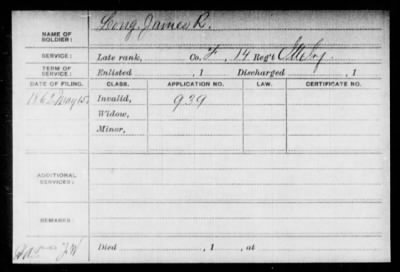 NAME OF SOLDIER: Long, James R.
SERVICE: Late rank, Co. F, 14 Reg't
TERM OF SERVICE: Enlisted , 1 Discharged , 1
DATE OF FILING. CLASS. APPLICATION NO. LAW. CERTIFICATE NO.
1862 May 15 Invalid, 939
Widow,
Minor,
ADDITIONAL SERVICES:
REMARKS:
Died , 1 , at